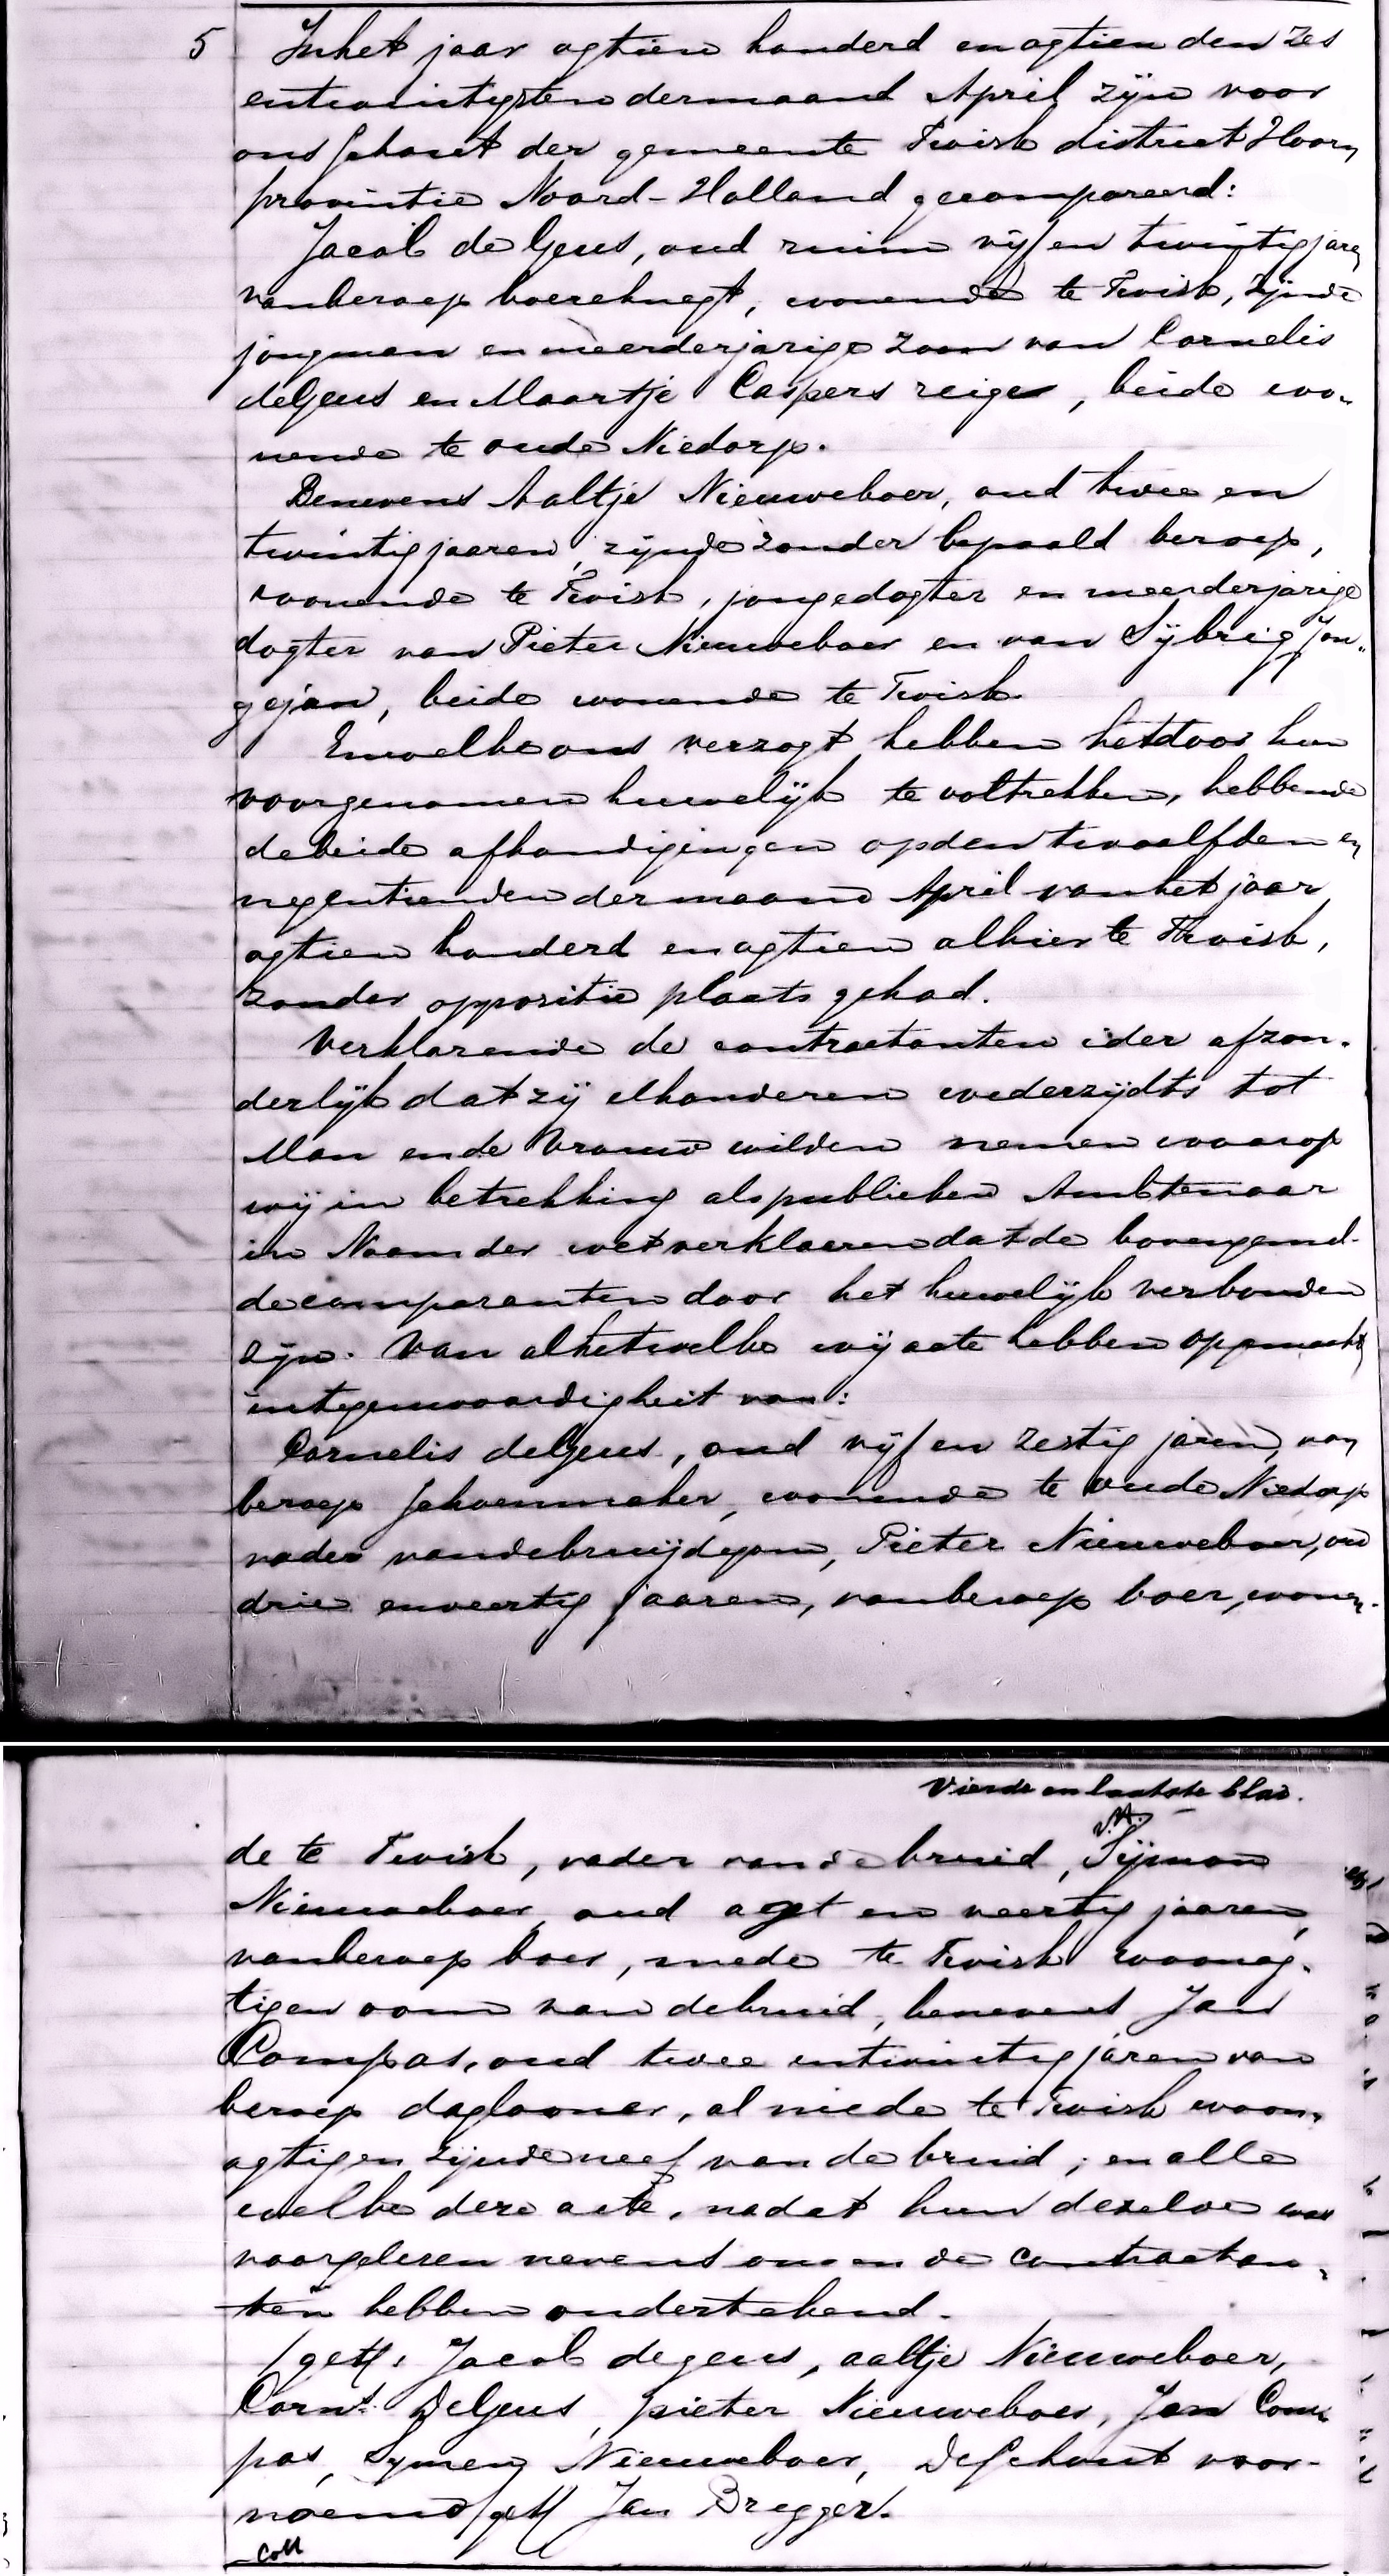 5 In het jaar agtien honderd en agtien den zes
entwintigsten der maand April zijn voor
ons schout der gemeente Twisk district Hoorn
provintie Noord-Holland gecompareerd:
Jacob de Geus, oud ruim vijf en twintig jaren
van beroep boereknegt, wonende te Twisk, zijnde
jongman en meerderjarige zoon van Cornelis
de Geus en Maartje Caspers reiger, beide wo-
nende te oude Niedorp.
Benevens Aaltje Nieuweboer, oud twee en
twintig jaaren, zijnde zonder bepaald beroep,
wonende te Twisk, jongedogter en meerderjarige
dogter van Pieter Nieuweboer en van Sijbrig Jon-
gejan, beide wonende te Twisk.
En welke ons verzogt hebben het door hun
voorgenomen huwelijk te voltrekken, hebbende
de beide afkondigingen op den twaalfden en
negentienden der maand April van het jaar
agtien honderd en agtien alhier te Twisk,
zonder oppositie plaats gehad.
Verklarende de contractanten ider afzon-
derlijk dat zij elkanderen wederzijdts tot
Man ende Vrouw wilden nemen waarop
wij in betrekking als publieken Ambtenaar
in Naam der wet verklaeren dat de bovengemel-
de comparanten door het huwelijk verbonden
zijn. Van al hetwelke wij acte hebben opgemaakt
in tegenwoordigheit van:
Cornelis de Geus, oud vijf en zestig jaren, van
beroep schoenmaker, wonende te Oude Niedorp
vader van de bruijdegom, Pieter Nieuweboer, oud
drie en veertig jaaren, van beroep boer, wonen-
Vierde en laatste blad.
de te Twisk, vader van de bruid, Sijmon
Nieuweboer, oud agt en veertig jaaren,
van beroep boer, mede te Twisk woonag-
tig en oom van de bruid, benevens Jan
Compas, oud twee en twintig jaren van
beroep daglooner, al mede te Twisk woon-
agtig en zijnde neef van de bruid; en alle
welke deze acte, nadat hun dezelve was
voorgelezen nevens ons en de contractan-
ten hebben ondertekend.
/get/: Jacob de geus, aaltje Nieuweboer,
Corns. De Geus, pieter Nieuweboer, Jan Com-
pas, Symen Nieuweboer, De Schout voor-
noemd /get/ Jan Bregger.
Coll